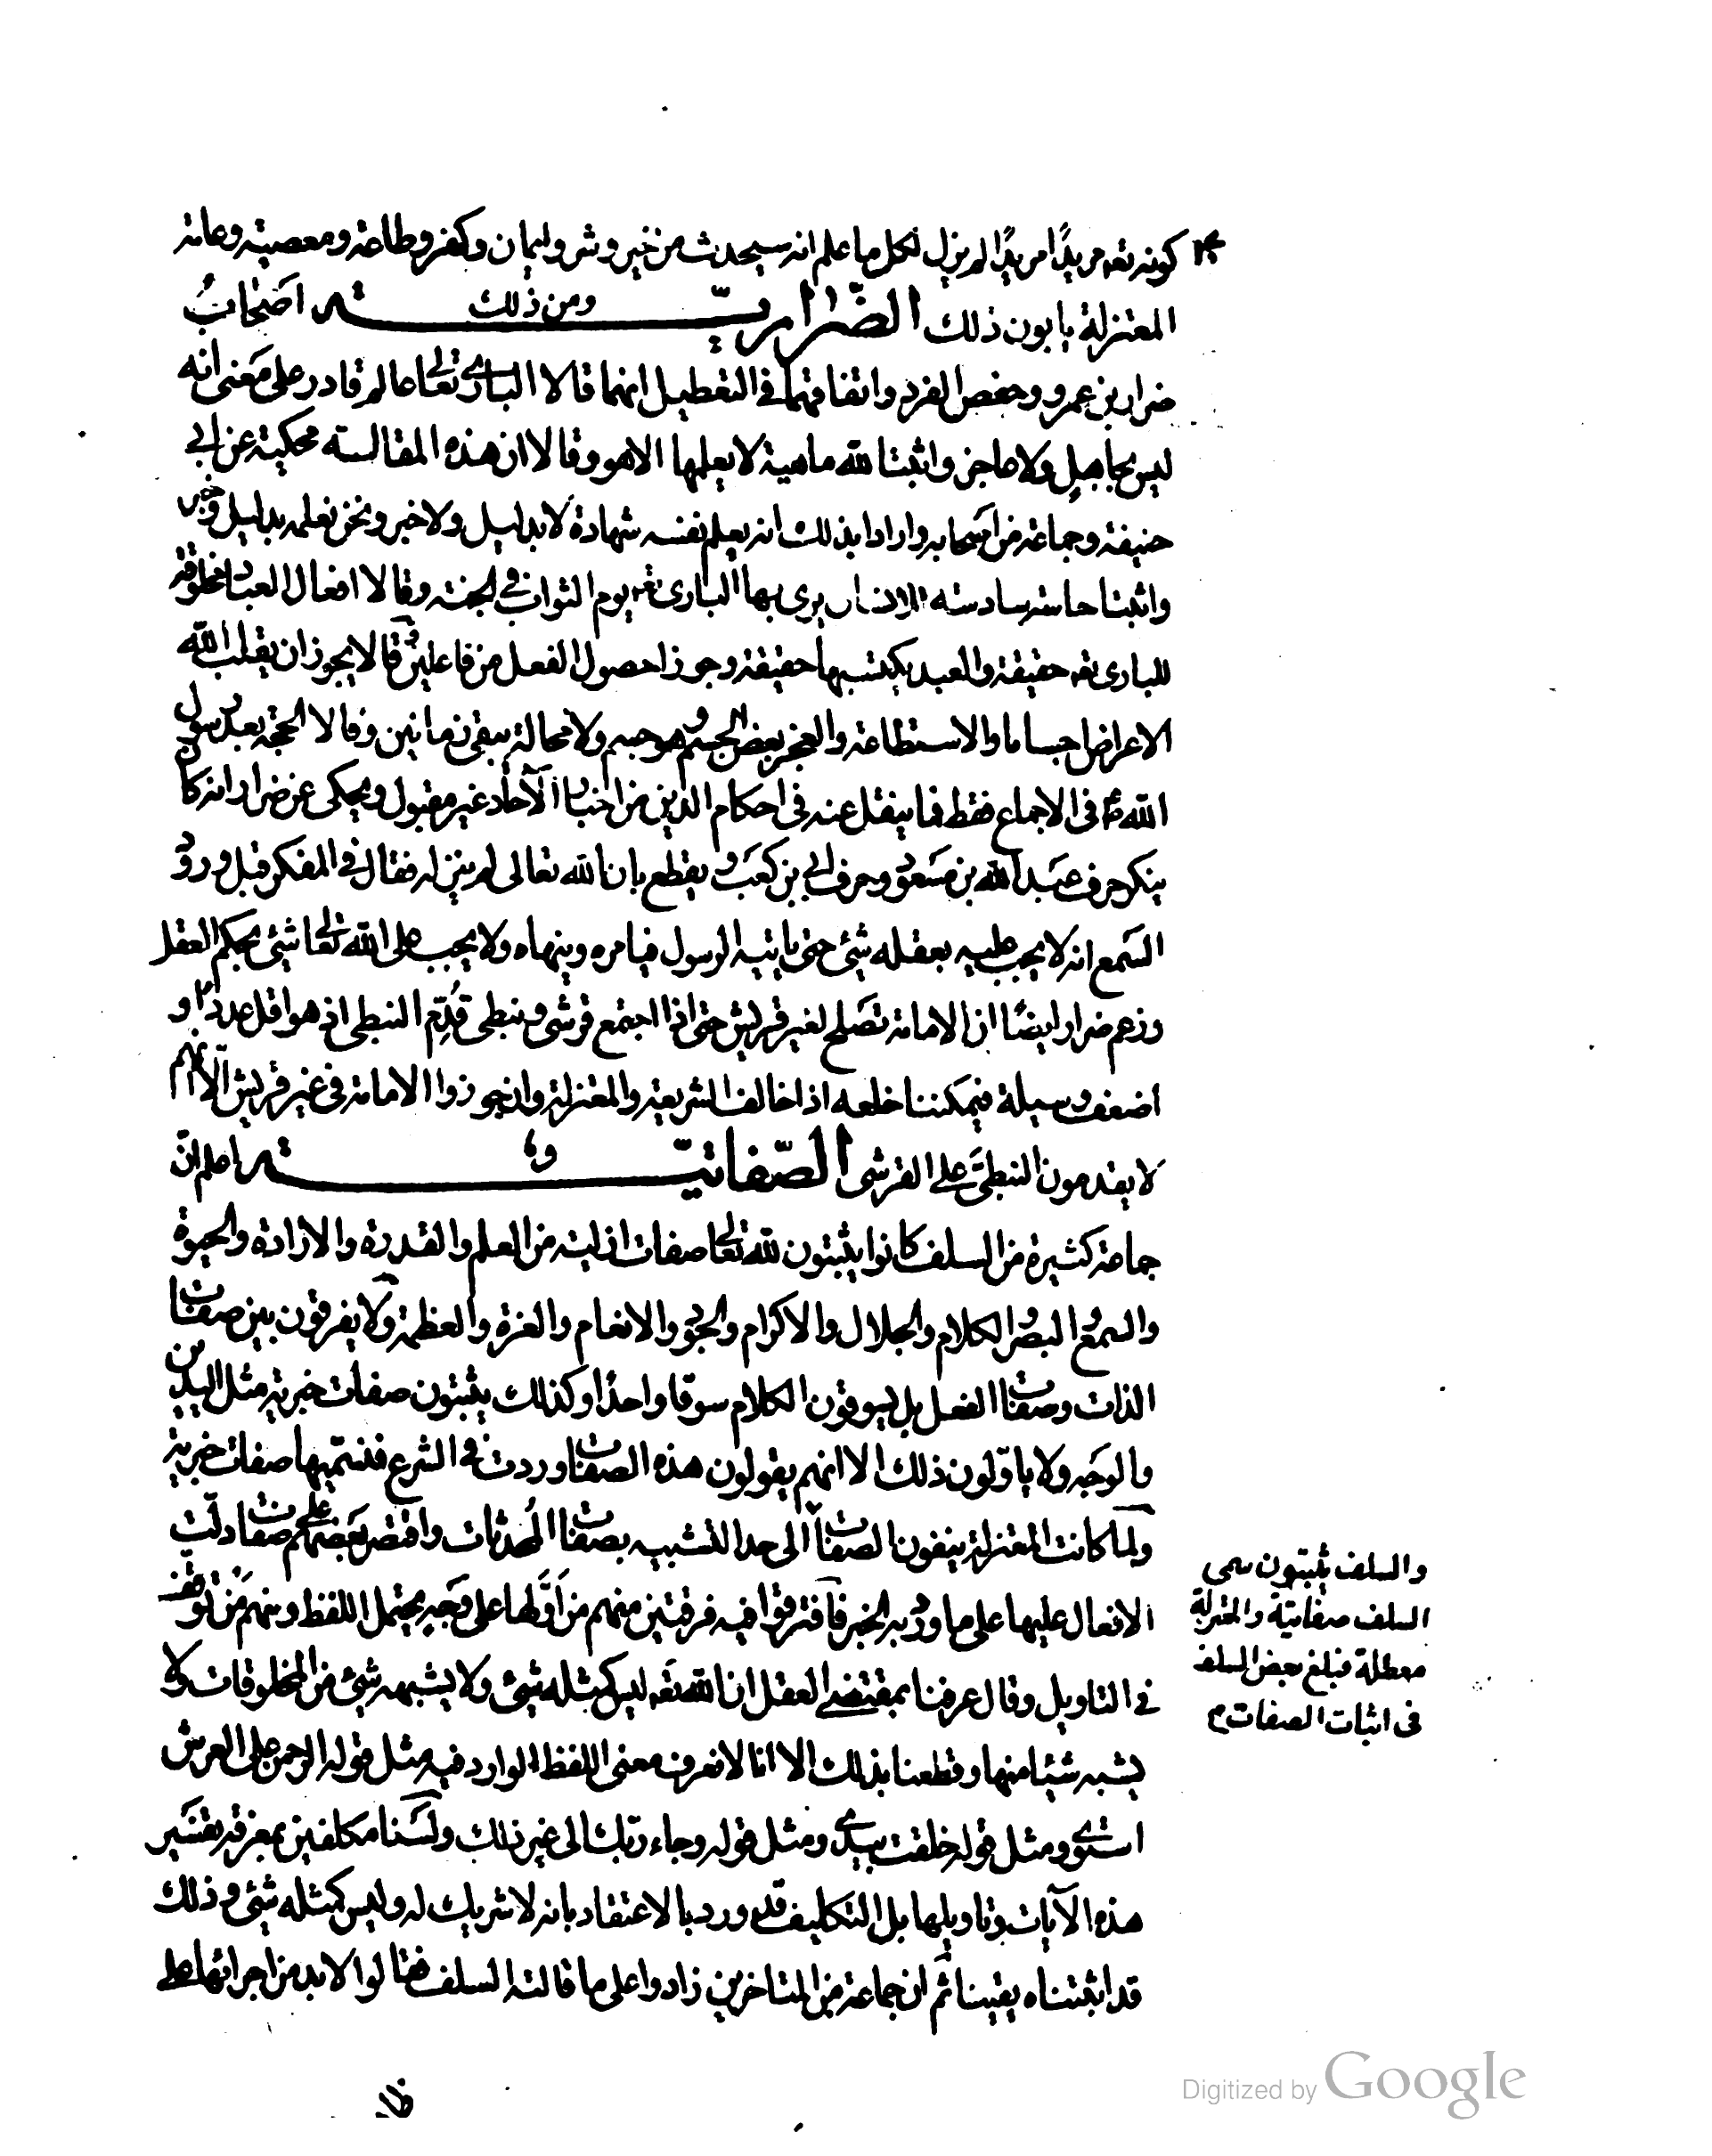 كونه تعه مريدًا مريدًا لم يزل لكل ما علم انه سيحدث من خير وشر وايمان وكفر وطاعة ومعصية وعامة
المعتزلة يابون ذلك ومن ذلك الضّراريّة اصحابُ
ضرار بن عمرو وحفص الفرد واتفاقهما في التعطيل انهما قالا الباري تعالى عالم قادر على معنى انه
ليس بجاهل ولا عاجز واثبتا لله ماهية لا يعلمها الا هو وقالا ان هذه المقالة محكية عن ابي
حنيفة وجماعة من اصحابه وارادا بذلك انه يعلم نفسه شهادة لا بدليل ولا خبر ونحن نعلمه بدليل وخبر
واثبتا حاسة سادسة للانسان يرى بها الباري تعه يوم الثواب في الجنة وقالا افعال العباد مخلوقة
للباري تعه حقيقة والعبد يكتسبها حقيقة وجوزا حصول الفعل من فاعلين وقالا يجوز ان يقلب الله
الاعراض اجساما والاستطاعة والعجز بعض الجسم وهو جسم ولا محالة يبقى زمانين وقالا الحجة بعد رسول
الله في الاجماع فقط فما ينقل عنه في احكام الدين من اخبار الآحاد غير مقبول ويحكى عن ضرار انه كان
ينكر حرف عبد الله بن مسعود وحرف ابي بن كعب ويقطع بان الله تعالى لم ينزله فقال في المفكر قبل ورود
السمع انه لا يجب عليه بعقله شئ حتى ياتيه الرسول فيامره وينهاه ولا يجب على الله تعالى شئ بحكم العقل
وزعم ضرار ايضًا ان الامامة تصلح لغير قريش حتى اذا اجتمع قرشى ونبطى قُدِّم النبطى اذ هو اقل عددا و
اضعف وسيلة فيمكننا خلعه اذا خالف الشريعة والمعتزلة وان جوزوا الامامة في غير قريش الا انهم
لا يقدمون النبطىّ على القرشى الصّفاتيّة اعلم انّ
جماعة كثيرة من السلف كانوا يثبتون لله تعالى صفات ازلية من العلم والقدرة والارادة والحيوة
والسمع البصر الكلام والجلال والاكرام والجود والانعام والعزة والعظمة ولا يفرقون بين صفات
الذات وصفات الفعل بل يسوقون الكلام سوقا واحدًا وكذلك يثبتون صفات خبرية مثل اليدين
والوجه ولا ياوّلون ذلك الا انهم يقولون هذه الصفات وردت في الشرع فنسميها صفات خبرية
ولما كانت المعتزلة ينفون الصفات الى حد التشبيه بصفات المحدثات واقتصر بعضهم على صفات دلّت
الافعال عليها على ما ورد به الخبر فافترقوا فيه فرقتين منهم من اوّلها على وجه يحتمل اللفظ ومنهم من توقف
في التاويل وقال عرفنا بمقتضى العقل ان الله تعه ليس كمثله شئ ولا يشبهه شئ من المخلوقات ولا
يشبه شيئا منها وقطعنا بذلك الا انا لا نعرف معنى اللفظ الوارد فيه مثل قوله الرحمن على العرش
استوى ومثل قوله خلقت بيدى ومثل قوله وجاء ربّك الى غير ذلك ولسنا مكلفين بمعرفة تفسير
هذه الآيات وتاويلها بل التكليف قد ورد بالاعتقاد بانه لا شريك له وليس كمثله شئ وذلك
قد اثبتناه يقينا ثم ان جماعة من المتاخرين زادوا على ما قالته السلف فقالوا لا بد من اجرائها على
والسلف يثبتون سمى
السلف صفاتية والمعتزلة
معطلة فبلغ بعض السلف
فى اثبات الصفات
Digitized by Google